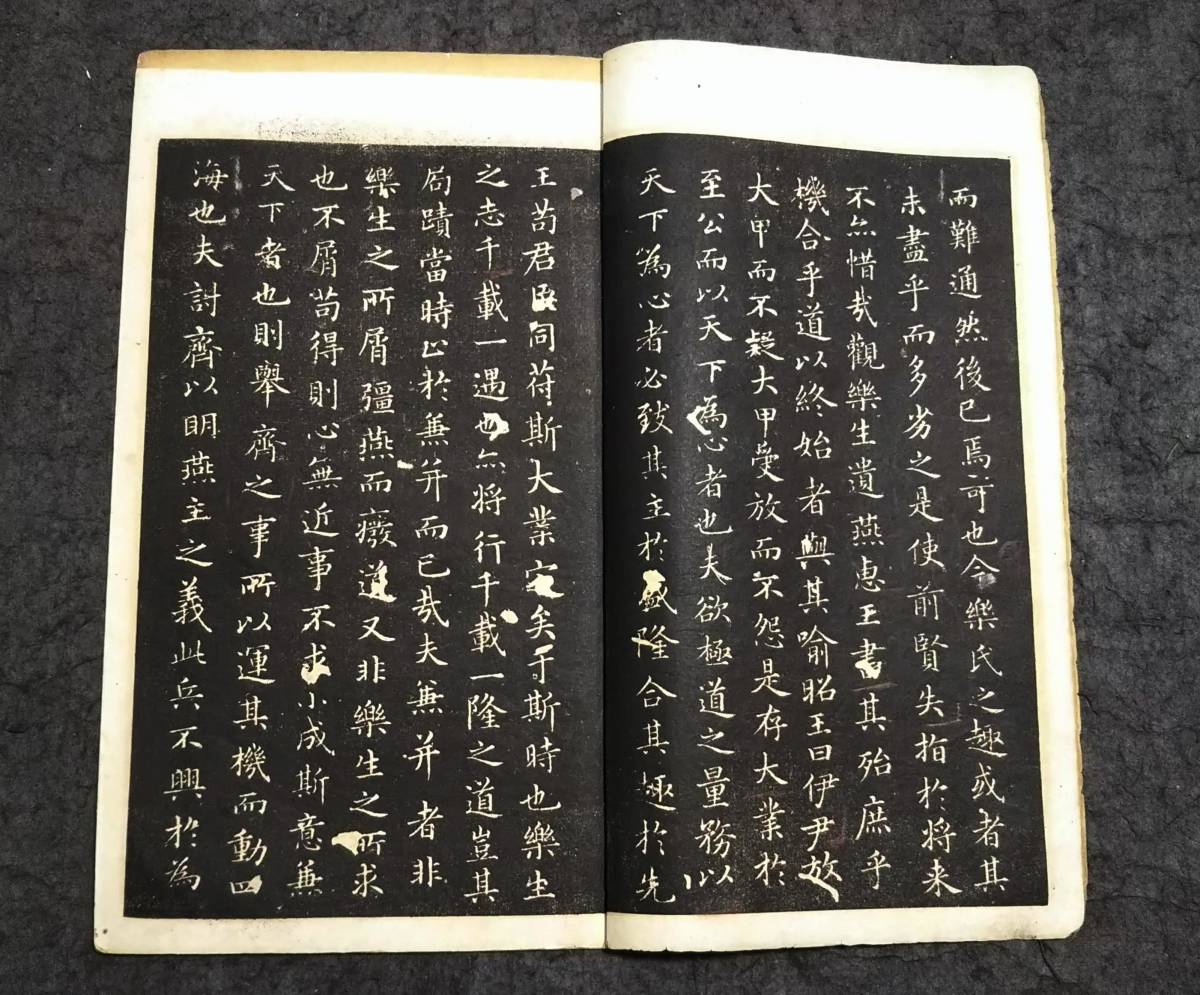 而難通然後已焉可也今樂氏之趣或者其
未盡乎而多劣之是使前賢失指於将来
不亦惜哉觀樂生遺燕惠王書其殆庶乎
機合乎道以終始者與其喻昭王曰伊尹放
大甲而不疑大甲受放而不怨是存大業於
至公而以天下為心者也夫欲極道之量務以
天下為心者必致其主於盛隆合其趣於先
王苟君臣同苻斯大業定矣于斯時也樂生
之志千載一遇也亦将行千載一隆之道豈其
局蹟當時止於兼并而已哉夫兼并者非
樂生之所屑彊燕而癈道又非樂生之所求
也不屑苟得則心無近事不求小成斯意兼
天下者也則舉齊之事所以運其機而動四
海也夫討齊以明燕主之義此兵不興於為